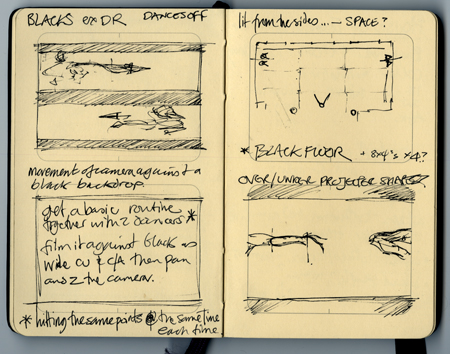 BLACKS ex DR DANCES OFF
movement of camera against a
black backdrop.
get a basic routine
together with 2 dancers *
film it against blacks as
wide CU & C/A then pan
and Z the camera.
* hitting the same points @ the same time
each time.
lit from the sides... — SPACE?
* BLACK FLOOR + 8x4's x4?
OVER/UNDER PROJECTED